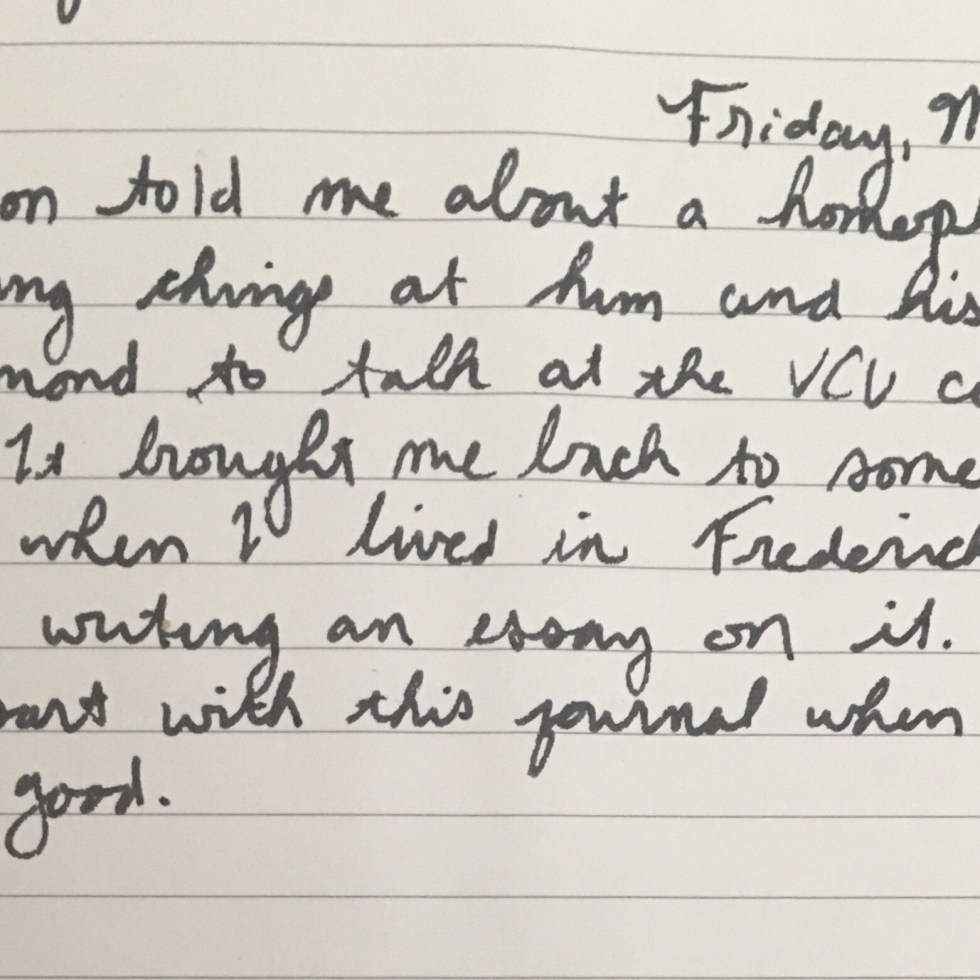 Friday, M
on told me about a homop
ing things at him and his
mond to talk at the VCU co
It brought me back to some
when I lived in Frederick
writing an essay on it.
art with this journal when
good.